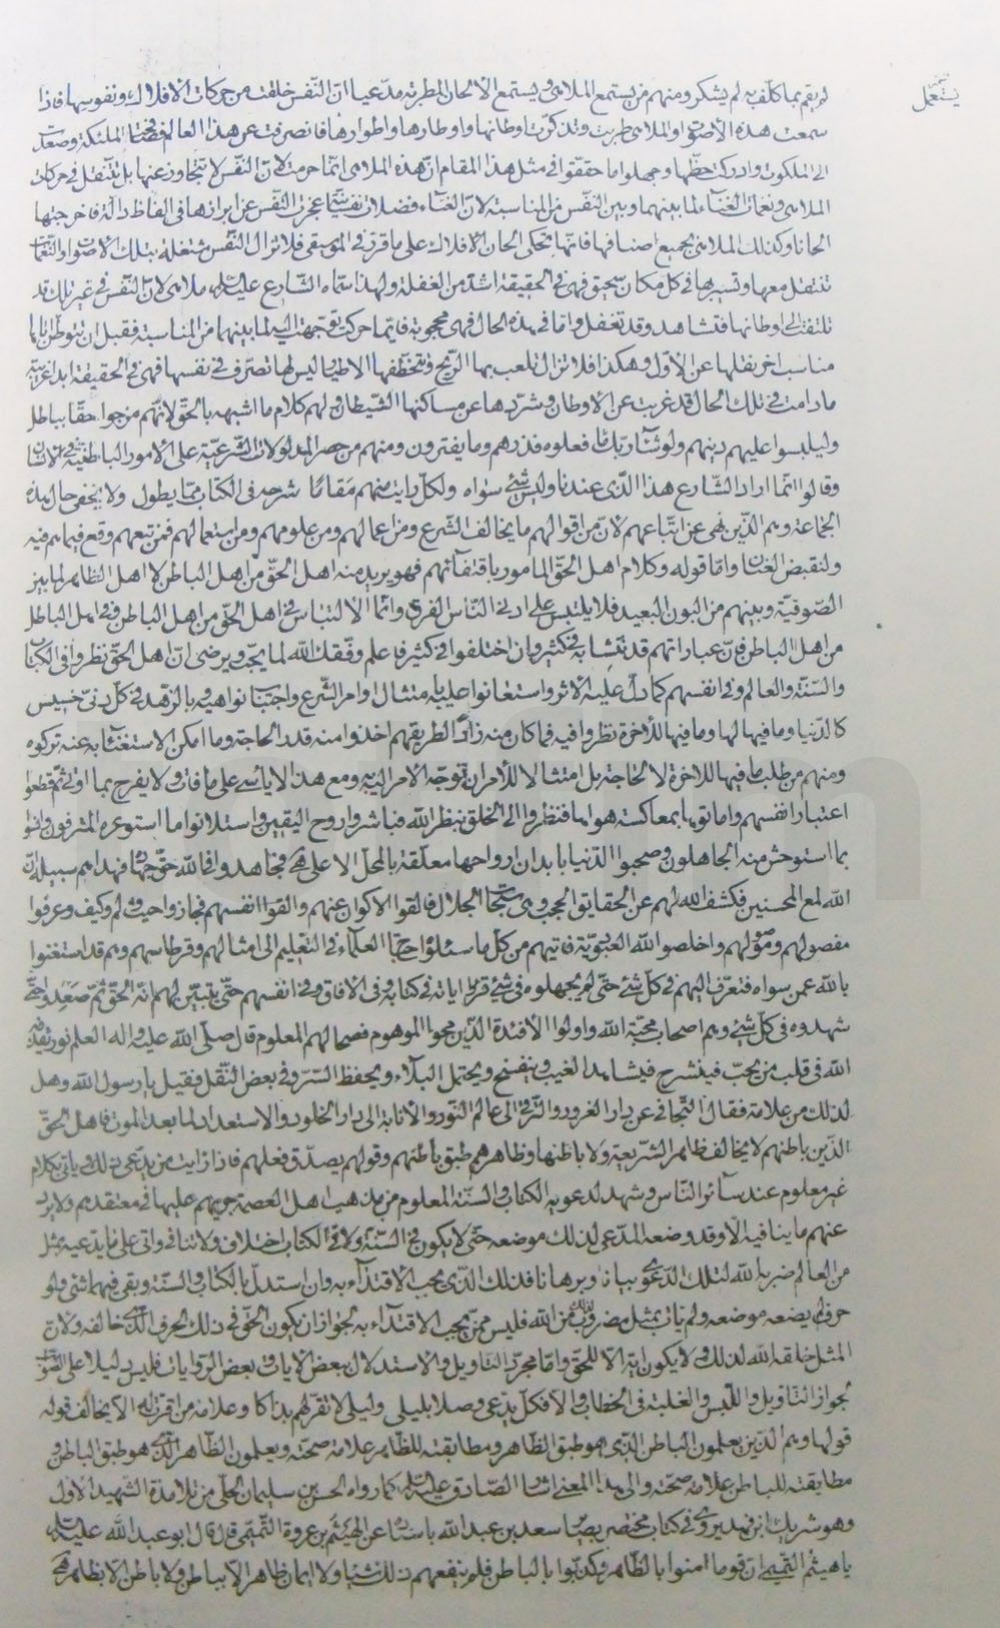 لم يقم بما كلف به لم يشكر ومنهم من يستمع الملاهي ويستمع الألحان المطربة مدّعيا انّ النّفس خلقت من حركات الأفلاك ونفوسها فاذا
سمعت هذه الأصوات والملاهي طربت وتذكّرت اوطانها واوطارها واطوارها فانصرفت عن هذا العالم الملئكة وصعدت
الى الملكوت وادركت حظّها وجهلوا ما حققوا في مثل هذا المقام انّ هذه الملاهي انّما حرمت لانّ النّفس لا تتجاوز عنها بل تتنقل في حركات
الملاهي ونغمات الغناء لما بينهما وبين النّفس من المناسبة لانّ الغناء فضلات نفسيّة عجزت النّفس عن ابرازها في الفاظ دالّة فاخرجتها
الحانا وكذلك الملاهي بجميع اصنافها فانّها تحكى الحان الأفلاك على ما قرّر في الموسيقى فلا تزال النّفس مشتغلة بتلك الأصوات والنّغمات
تنتقل معها وتسير بها في كلّ مكان سحيق فهي في الحقيقة اشدّ من الغفلة ولهذا سمّاه الشّارع عليه السلام ملاهي لانّ النّفس في غير تلك قد
تلتفت الى اوطانها فتشاهد وقد تغفل وامّا في هذه الحال فهي محجوبة فانّها حركت توجهت اليه لما بينهما من المناسبة فقبل ان تتوطّن اتاها
مناسب اخر نقلها عن الأوّل وهكذا فلا تزال تلعب بها الرّيح وتتخطّفها الأطيار ليس لها تصرّف في نفسها فهي في الحقيقة ابدا غريبة
ما دامت في تلك الحال قد غربت عن الأوطان وشرّدها عن مساكنها الشّيطان ولهم كلام ما اشبهه بالحقّ لانّهم مزجوا حقّا بباطل
وليلبسوا عليهم دينهم ولو شاء ربّك ما فعلوه فذرهم وما يفترون ومنهم من حصر المدلولات الشّرعيّة على الأمور الباطنيّة في الانسان
وقالوا انّما اراد الشّارع هذا الّذي عندنا وليس شيء سواه ولكلّ رايت منهم مقاما شرحه في الكتاب ممّا يطول ولا يخفى حال هذه
الجماعة وهم الّذين نهى عن اتّباعهم لانّ من اقوالهم ما يخالف الشّرع ومن اعمالهم ومن علومهم ومن استعمالهم فمن تبعهم وقع فيما هم فيه
ولنقبض العنان وامّا قوله وكلام اهل الحقّ المأمور باقتفائهم فهو يريد منه اهل الحقّ من اهل الباطن لا اهل الظّاهر لما بين
الصّوفيّة وبينهم من البون البعيد فلا يلتبس على ادنى النّاس الفرق وانّما الالتباس في اهل الحقّ من اهل الباطن في اهل الباطل
من اهل الباطن فانّ عباراتهم قد تتشابه في كثير وان اختلفوا في كثير فاعلم وفّقك الله لما يحبّ ويرضى انّ اهل الحقّ نظروا في الكتاب
والسّنّة والعالم وفي انفسهم كما دلّ عليه الأثر واستعانوا عليه بامتثال اوامر الشّرع واجتناب نواهيه بالزّهد في كلّ دنيّ خسيس
كالدّنيا وما فيها لها وما فيها للأخرة نظروا فيه فما كان منه زادا لطريقهم اخذوا منه قدر الحاجة وما امكن الاستغناء به عنه تركوه
ومنهم من طلب ما فيها للأخرة لا لحاجته بل امتثالا للأمر ان توجّه الأمر اليه ومع هذا لا يأسى على ما فات ولا يفرح بما اوتي ثمّ قطعوا
اعتبار انفسهم واماتوها بمعاكسة هواها فنظروا الى الخلق بنظر الله فباشروا روح اليقين واستلانوا ما استوعره المترفون وانسوا
بما استوحش منه الجاهلون وصحبوا الدّنيا بابدان ارواحها معلّقة بالمحلّ الأعلى فجاهدوا في الله حقّ جهاده فهداهم سبيله انّ
الله لمع المحسنين فكشف الله لهم عن الحقايق الحجب وهي سبحات الجلال فالقوا الأكوان عنهم والقوا انفسهم فجازوا حيث ولم وكيف وعرفوا
مفصولهم وموصولهم واخلصوا لله العبوديّة فاتيهم من كلّ ما سئلوا احتاج العلماء في التّعليم الى امثالهم وقرطاسهم وهم قد استغنوا
بالله عمن سواه فتعرّف اليهم في كلّ شيء حتى لم يجهلوه في شيء قراوا اياته في كتابه وفي الأفاق وفي انفسهم حتّى يتبيّن لهم انّه الحقّ ثمّ صعدوا حتى
شهدوه في كلّ شيء وهم اصحاب محبّة الله واولوا الأفئدة الّذين محوا الموهوم فصحا لهم المعلوم قال صلّى الله عليه واله العلم نور يقذفه
الله في قلب من يحبّ فينشرح فيشاهد الغيب وينفسح ويحتمل البلاء ويحفظ السّرّ وفي بعض النّقل فقيل يا رسول الله وهل
لذلك من علامة فقال التّجافي عن دار الغرور والتّرقّي الى عالم النّور والانابة الى دار الخلود والاستعداد لما بعد الموت فاهل الحقّ
الّذين باطنهم لا يخالف ظاهر الشّريعة ولا باطنها وظاهرهم طبق باطنهم وقولهم يصدّق فعلهم فاذا رايت من يدّعى ذلك وياتي بكلام
غير معلوم عند سائر النّاس وشهد لدعويه الكتاب والسّنّة المعلوم من مذهب اهل العصمة جريهم عليها في معتقدهم ولا يرد
عنهم ما ينافيه الّا وقد وضعه المدّعى لذلك موضعه حتّى لا يكون في السّنّة ولا في الكتاب اختلاف ولا تنافي واتى على ما يدّعيه بمثل
من العالم ضربه الله لتلك الدّعوى بيانا وبرهانا فذلك الّذي يجب الاقتداء به وان استدلّ بالكتاب والسّنّة وبقي فيهما شيء ولو
حرف لم يضعه موضعه ولم يات بمثل مضروب لذلك من الله فليس ممّن يجب الاقتداء به لجواز ان يكون الحقّ في ذلك الحرف الّذي خالفه ولانّ
المثل خلقه الله لذلك ولا يكون اية الّا للحقّ وامّا مجرّد التّاويل والاستدلال ببعض الايات وبعض الرّوايات فليس دليلا على
لجواز التّاويل واللّبس والغلبة في الخطاب والّا فكلّ يدّعى وصلا بليلى وليلى لا تقرّ لهم بذاكا وعلامة من اقرّت له الّا يخالف قوله
قولها وهم الّذين يعلمون الباطن الّذي هو طبق الظّاهر ومطابقته للظّاهر علامة صحّته ويعلمون الظّاهر الّذي هو طبق الباطن و
مطابقته للباطن علامة صحّته والى هذا المعنى اشار الصّادق عليه السلام كما رواه الحسن بن سليمان الحلّي من تلامذة الشّهيد الأوّل
وهو شريك ابن فهد يروى في كتاب مختصر بصائر سعد بن عبد الله باسناده عن الهيثم بن عروة التّميمي قال قال ابو عبد الله عليه السلام
يا هيثم التّميمي انّ قوما امنوا بالظّاهر وكذّبوا بالباطن فلم ينفعهم ذلك شيئا ولا ايمان ظاهر الّا بباطن ولا باطن الّا بظاهر
يستعمل